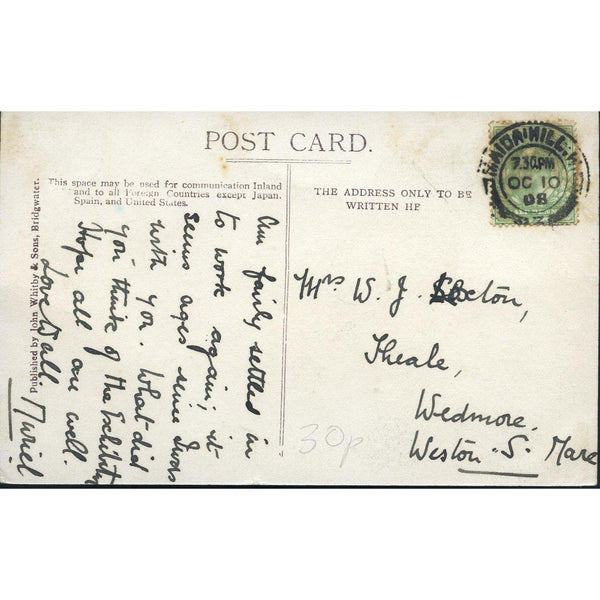 POST CARD.
This space may be used for communication Inland
and to all Foreign Countries except Japan,
Spain, and United States.
THE ADDRESS ONLY TO BE
WRITTEN HE
Published by John Whitby & Sons, Bridgwater.
Am fairly settled in
to work again; it
seems ages since I was
with you. What did
you think of the Exhibit
Hope all are well.
Love to all.
Muriel
MAIDA HILL.W
7.30PM
OC 10
08
Mrs W. J.
Theale,
Wedmore.
Weston. S. Mare
30p